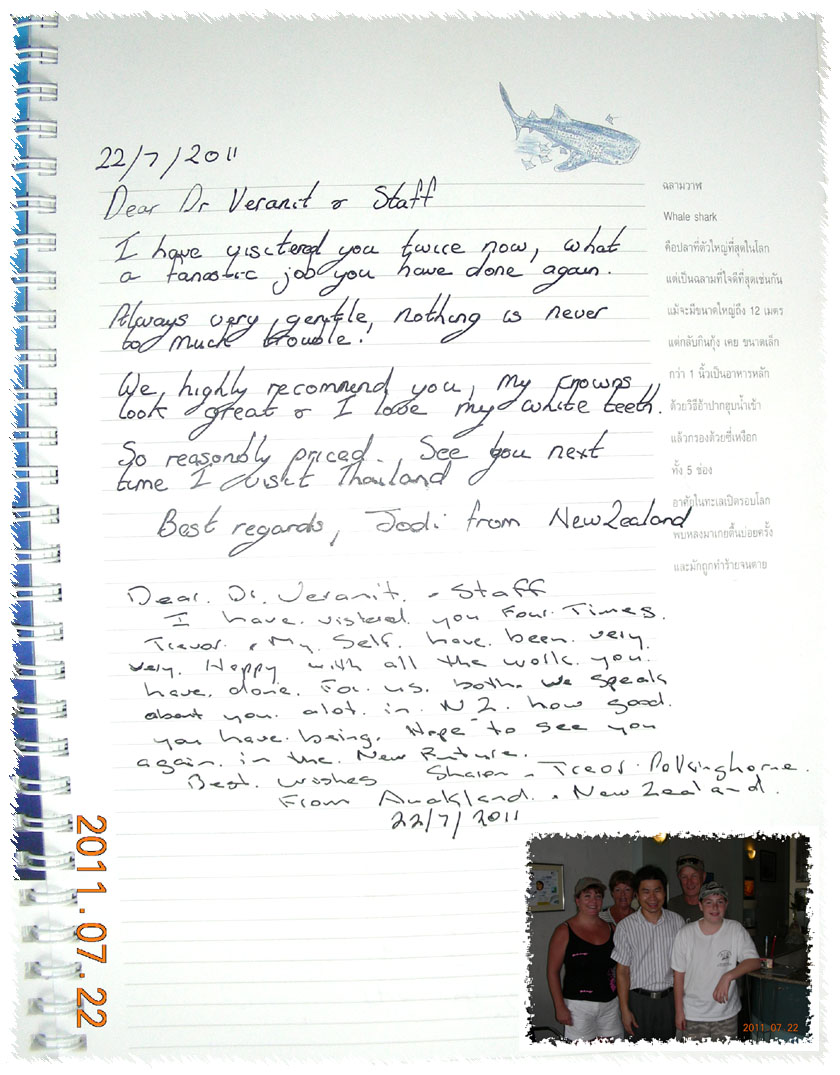 22/7/2011
Dear Dr Veranit & Staff
I have visitered you twice now, what
a fanastic job you have done again.
Always very gentle, nothing is never
to much trouble!
We highly recommend you, my crowns
look great & I love my white teeth.
So reasonbly priced. See you next
time I visit Thailand
Best regards, Jodi from New Zealand
ฉลามวาฬ
Whale shark
คือปลาที่ตัวใหญ่ที่สุดในโลก
แต่เป็นฉลามที่ใจดีที่สุดเช่นกัน
แม้จะมีขนาดใหญ่ถึง 12 เมตร
แต่กลับกินกุ้ง เคย ขนาดเล็ก
กว่า 1 นิ้วเป็นอาหารหลัก
ด้วยวิธีอ้าปากฮุบน้ำเข้า
แล้วกรองด้วยซี่เหงือก
ทั้ง 5 ช่อง
อาศัยในทะเลเปิดรอบโลก
พบหลงมาเกยตื้นบ่อยครั้ง
และมักถูกทำร้ายจนตาย
Dear. Dr. Veranit. & Staff
I have. vistered you Four. Times.
Trevor. & My. Self. have. been. very.
very. Happy with all the work. you.
have. done. For. us. both. We speak
about you. alot. in. N Z. how good.
you have. being. Hope to see you
again. in the. New Future.
Best. wishes Sharon & Treor. Polkinghorne.
From Auckland. & New Zealand.
22/7/2011
2011.07.22
2011 07 22